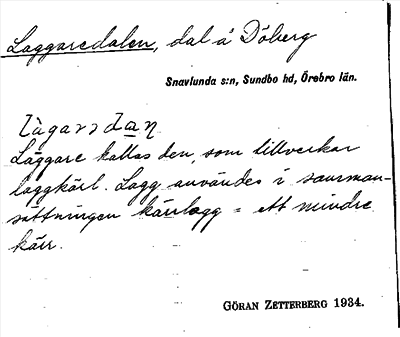 Laggaredalen, dal å Döberg
Snavlunda s:n, Sundbo hd, Örebro län.
Làgarədan
Laggare kallas den, som tillverkar
laggkärl. Lagg användes i samman-
sättningen kärrlagg = ett mindre
kärr.
GÖRAN ZETTERBERG 1934.